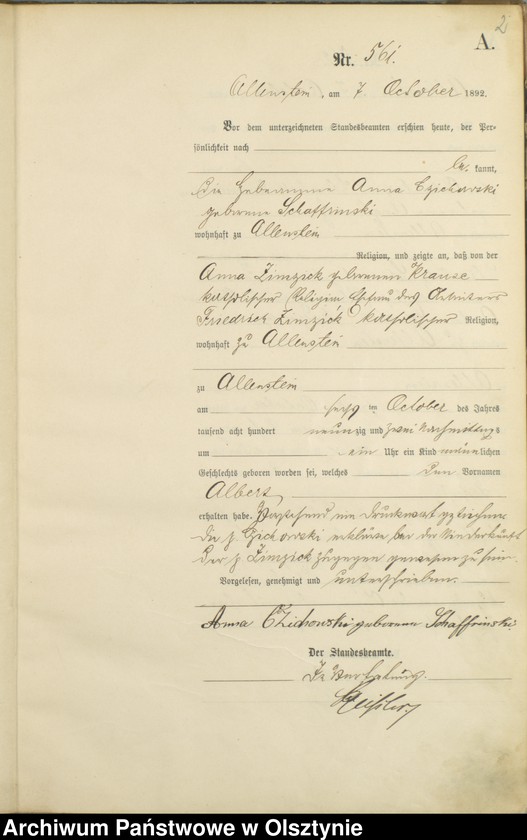 2
A.
Nr. 561.
Allenstein, am 7. October 1892.
Vor dem unterzeichneten Standesbeamten erschien heute, der Per-
sönlichkeit nach
be kannt,
die Hebeamme Anna Czichowski
geborene Schaffrinski
wohnhaft zu Allenstein
Religion, und zeigte an, daß von der
Anna Zimzick geborenen Krause
katholischer Religion Ehefrau des Arbeiters
Friedrich Zimzick katholischer Religion,
wohnhaft zu Allenstein
zu Allenstein
am sechs ten October des Jahres
tausend acht hundert neunzig und zwei Nachmittags
um ein Uhr ein Kind männlichen
Geschlechts geboren worden sei, welches den Vornamen
Albert
erhalten habe. Vorstehend ein Druckwort gestrichen
die p Czichowski erklärte bei der Niederkunft
der p Zimzick zugegen gewesen zu sein.
Vorgelesen, genehmigt und unterschrieben.
Anna Czichowski geborene Schaffrinski.
Der Standesbeamte.
In Vertretung.
Archiwum Państwowe w Olsztynie